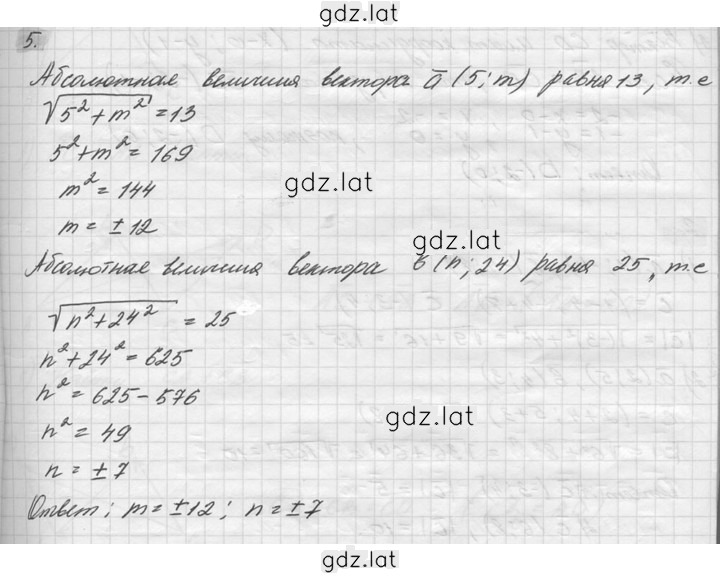 gdz.lat
5.
Абсолютная величина вектора ā (5; m) равна 13, т.е
√5²+m² = 13
5²+m² = 169
m² = 144
gdz.lat
m = ±12
gdz.lat
Абсолютная величина вектора b (n; 24) равна 25, т.е
√n²+24² = 25
n²+24² = 625
n² = 625 - 576
gdz.lat
n² = 49
n = ±7
gdz.lat
Ответ: m = ±12; n = ±7
gdz.lat